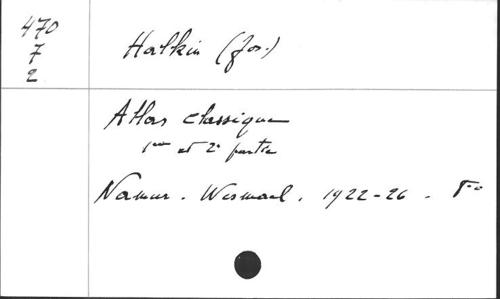 470
7
2
Halkin (Jos.)
Atlas classique
1re et 2e partie
Namur. Wesmael. 1922-26.